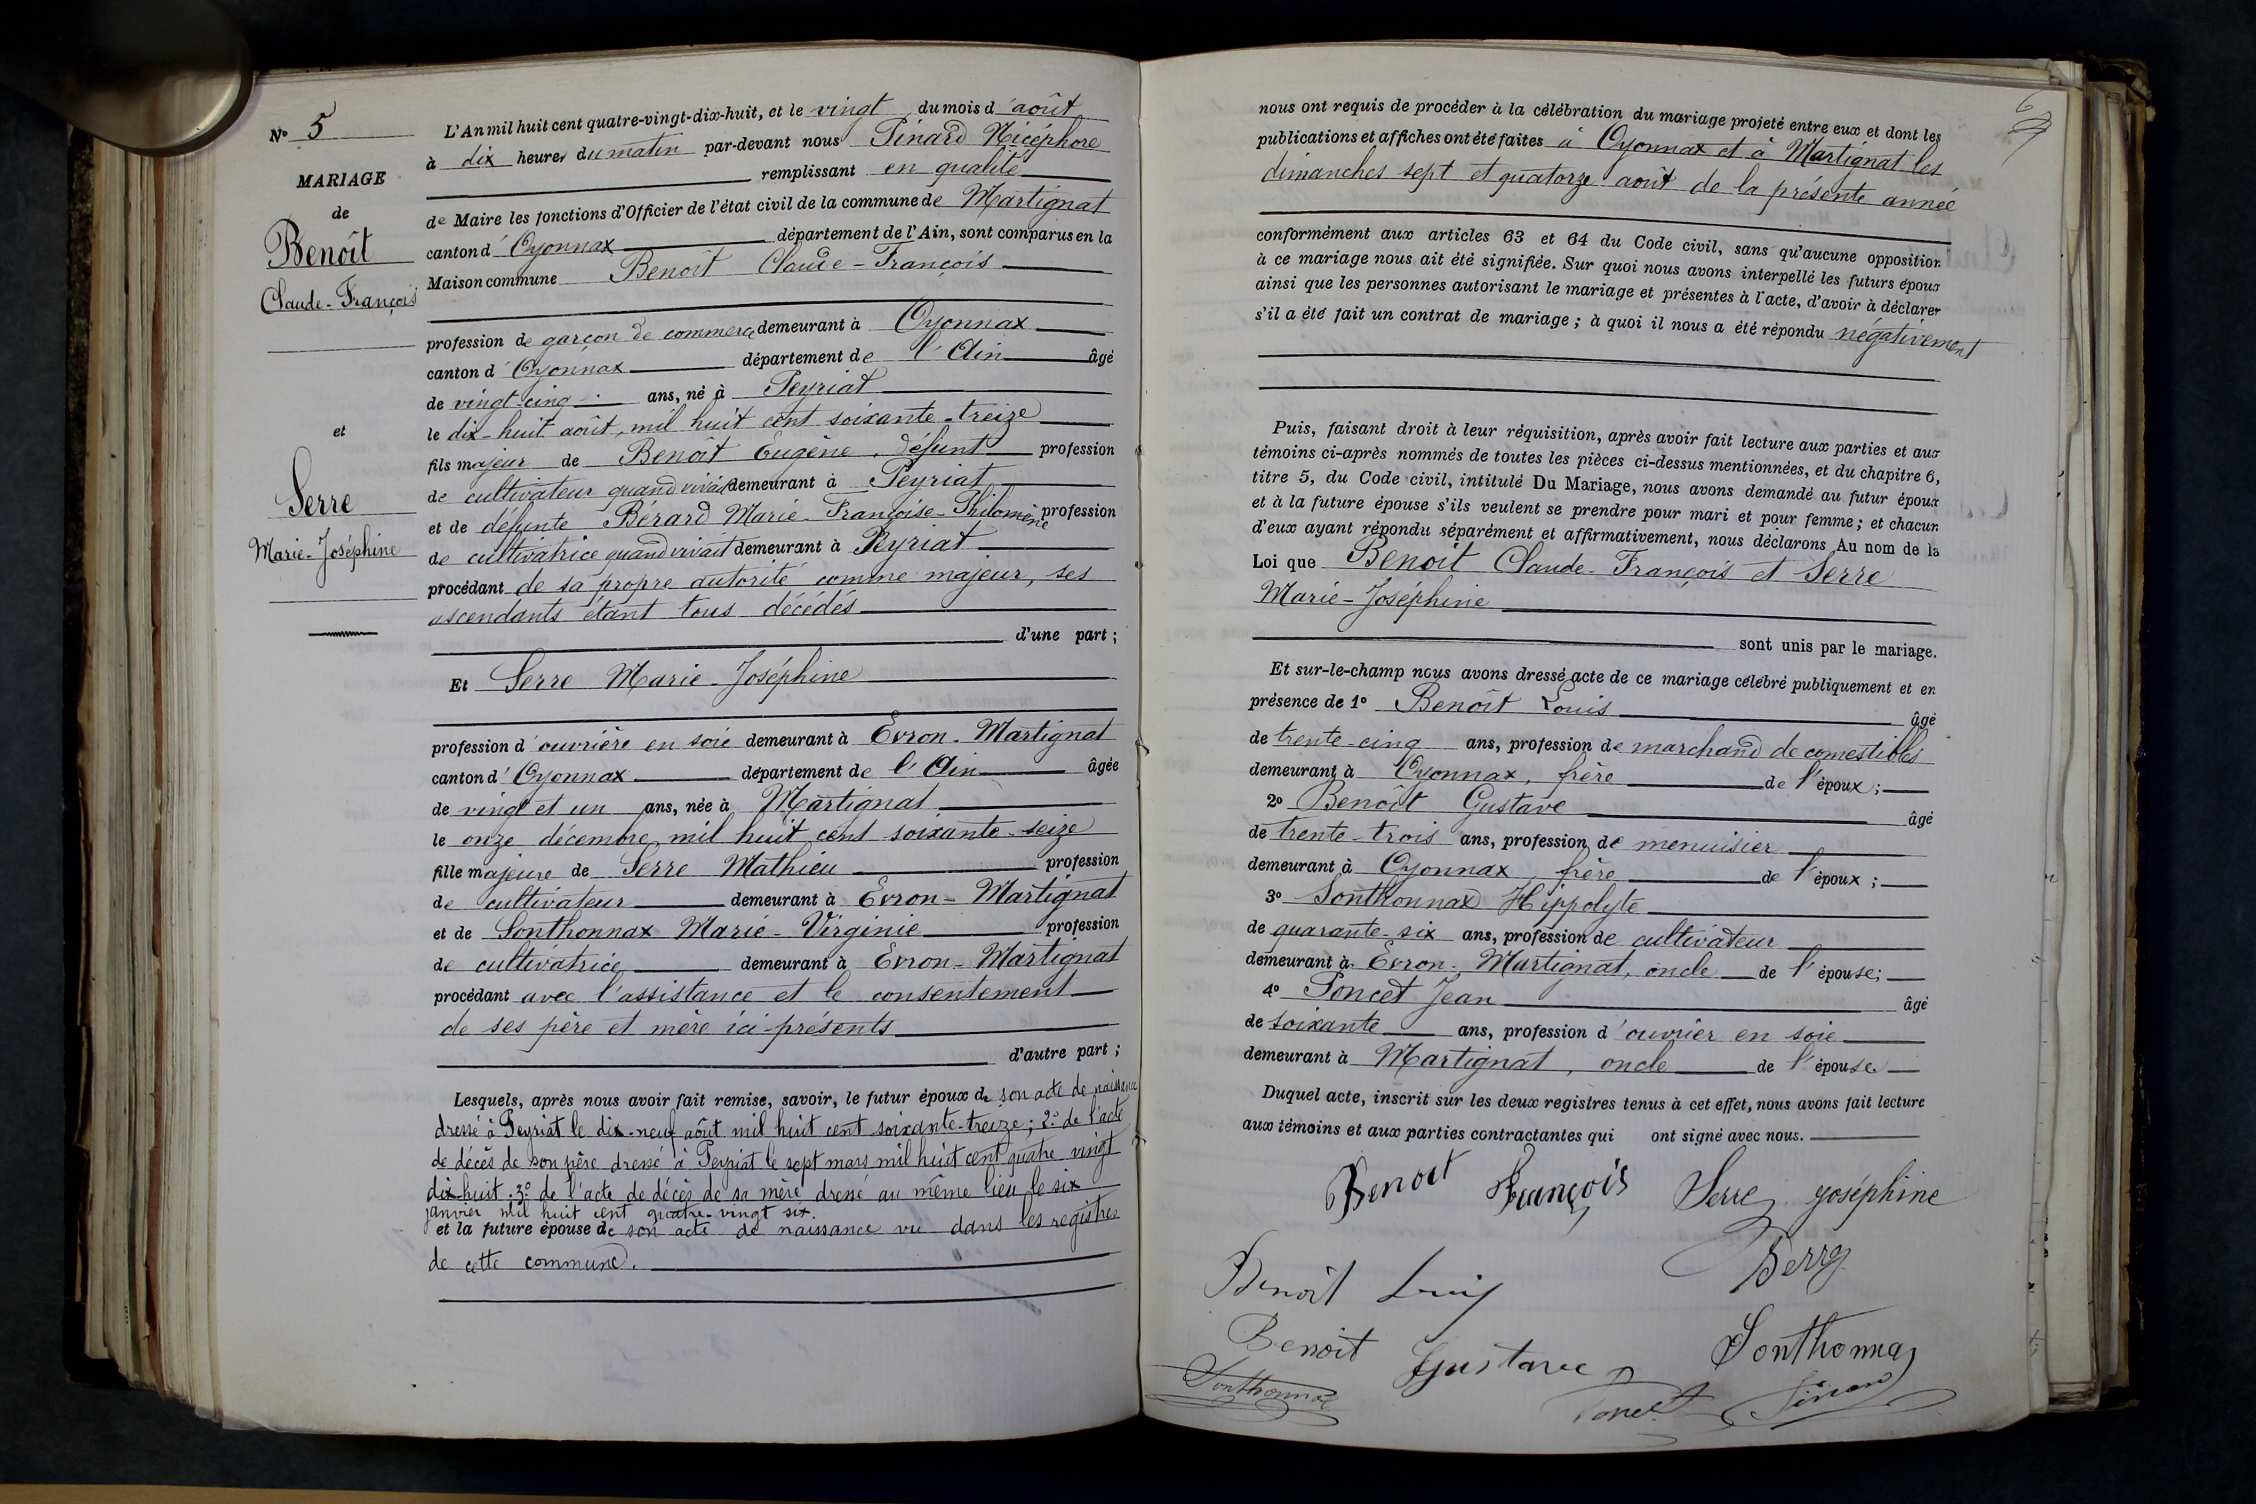 N° 5
MARIAGE
de
Benoît
Claude-François
et
Serre
Marie-Joséphine
L'An mil huit cent quatre-vingt-dix-huit, et le vingt du mois d'août
à dix heures du matin par-devant nous Pinard Nicéphore
remplissant en qualité
de Maire les fonctions d'Officier de l'état civil de la commune de Martignat
canton d'Oyonnax département de l'Ain, sont comparus en la
Maison commune Benoît Claude-François
profession de garçon de commerce demeurant à Oyonnax
canton d'Oyonnax département de l'Ain âgé
de vingt-cinq ans, né à Peyriat
le dix-huit août, mil huit cent soixante-treize
fils majeur de Benoît Eugène, défunt profession
de cultivateur quand vivait demeurant à Peyriat
et de défunte Bérard Marie-Françoise-Philomène profession
de cultivatrice quand vivait demeurant à Peyriat
procédant de sa propre autorité comme majeur, ses
ascendants étant tous décédés
d'une part;
Et Serre Marie-Joséphine
profession d'ouvrière en soie demeurant à Evron-Martignat
canton d'Oyonnax département de l'Ain âgée
de vingt et un ans, née à Martignat
le onze décembre mil huit cent soixante-seize
fille majeure de Serre Mathieu profession
de cultivateur demeurant à Evron-Martignat
et de Sonthonnax Marie-Virginie profession
de cultivatrice demeurant à Evron-Martignat
procédant avec l'assistance et le consentement
de ses père et mère ici présents
d'autre part;
Lesquels, après nous avoir fait remise, savoir, le futur époux de son acte de naissance
dressé à Peyriat le dix-neuf août mil huit cent soixante-treize; 2° de l'acte
de décès de son père dressé à Peyriat le sept mars mil huit cent quatre vingt
dix-huit. 3° de l'acte de décès de sa mère dressé au même lieu le six
janvier mil huit cent quatre-vingt six.
et la future épouse de son acte de naissance vu dans les registres
de cette commune.
6
nous ont requis de procéder à la célébration du mariage projeté entre eux et dont les
publications et affiches ont été faites à Oyonnax et à Martignat les
dimanches sept et quatorze août de la présente année
conformément aux articles 63 et 64 du Code civil, sans qu'aucune opposition
à ce mariage nous ait été signifiée. Sur quoi nous avons interpellé les futurs époux
ainsi que les personnes autorisant le mariage et présentes à l'acte, d'avoir à déclarer
s'il a été fait un contrat de mariage; à quoi il nous a été répondu négativement
Puis, faisant droit à leur réquisition, après avoir fait lecture aux parties et aux
témoins ci-après nommés de toutes les pièces ci-dessus mentionnées, et du chapitre 6,
titre 5, du Code civil, intitulé Du Mariage, nous avons demandé au futur époux
et à la future épouse s'ils veulent se prendre pour mari et pour femme; et chacun
d'eux ayant répondu séparément et affirmativement, nous déclarons Au nom de la
Loi que Benoit Claude-François et Serre
Marie-Joséphine
sont unis par le mariage.
Et sur-le-champ nous avons dressé acte de ce mariage célébré publiquement et en
présence de 1° Benoît Louis âgé
de trente-cinq ans, profession de marchand de comestibles
demeurant à Oyonnax, frère de l'époux;
2° Benoît Gustave âgé
de trente-trois ans, profession de menuisier
demeurant à Oyonnax, frère de l'époux;
3° Sonthonnax Hippolyte
de quarante-six ans, profession de cultivateur
demeurant à Evron-Martignat, oncle de l'épouse;
4° Poncet Jean âgé
de soixante ans, profession d'ouvrier en soie
demeurant à Martignat, oncle de l'épouse
Duquel acte, inscrit sur les deux registres tenus à cet effet, nous avons fait lecture
aux témoins et aux parties contractantes qui ont signé avec nous.
Benoit François Serre Joséphine
Benoît Louis Serre
Benoit Gustave Sonthonnax
Sonthonnax Poncet Pinard